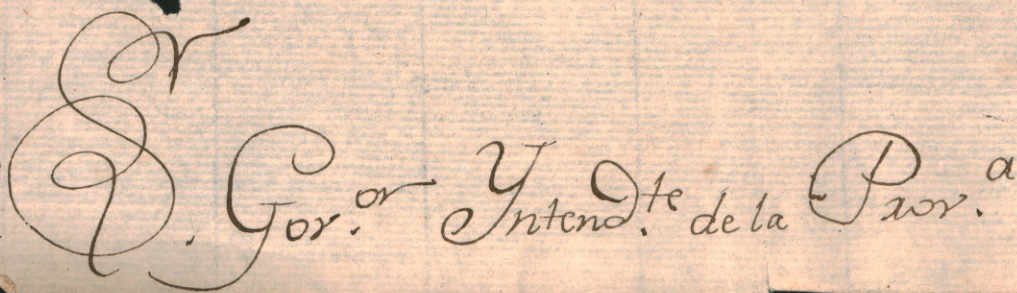 S.r Gov.or Yntend.te de la Prov.a